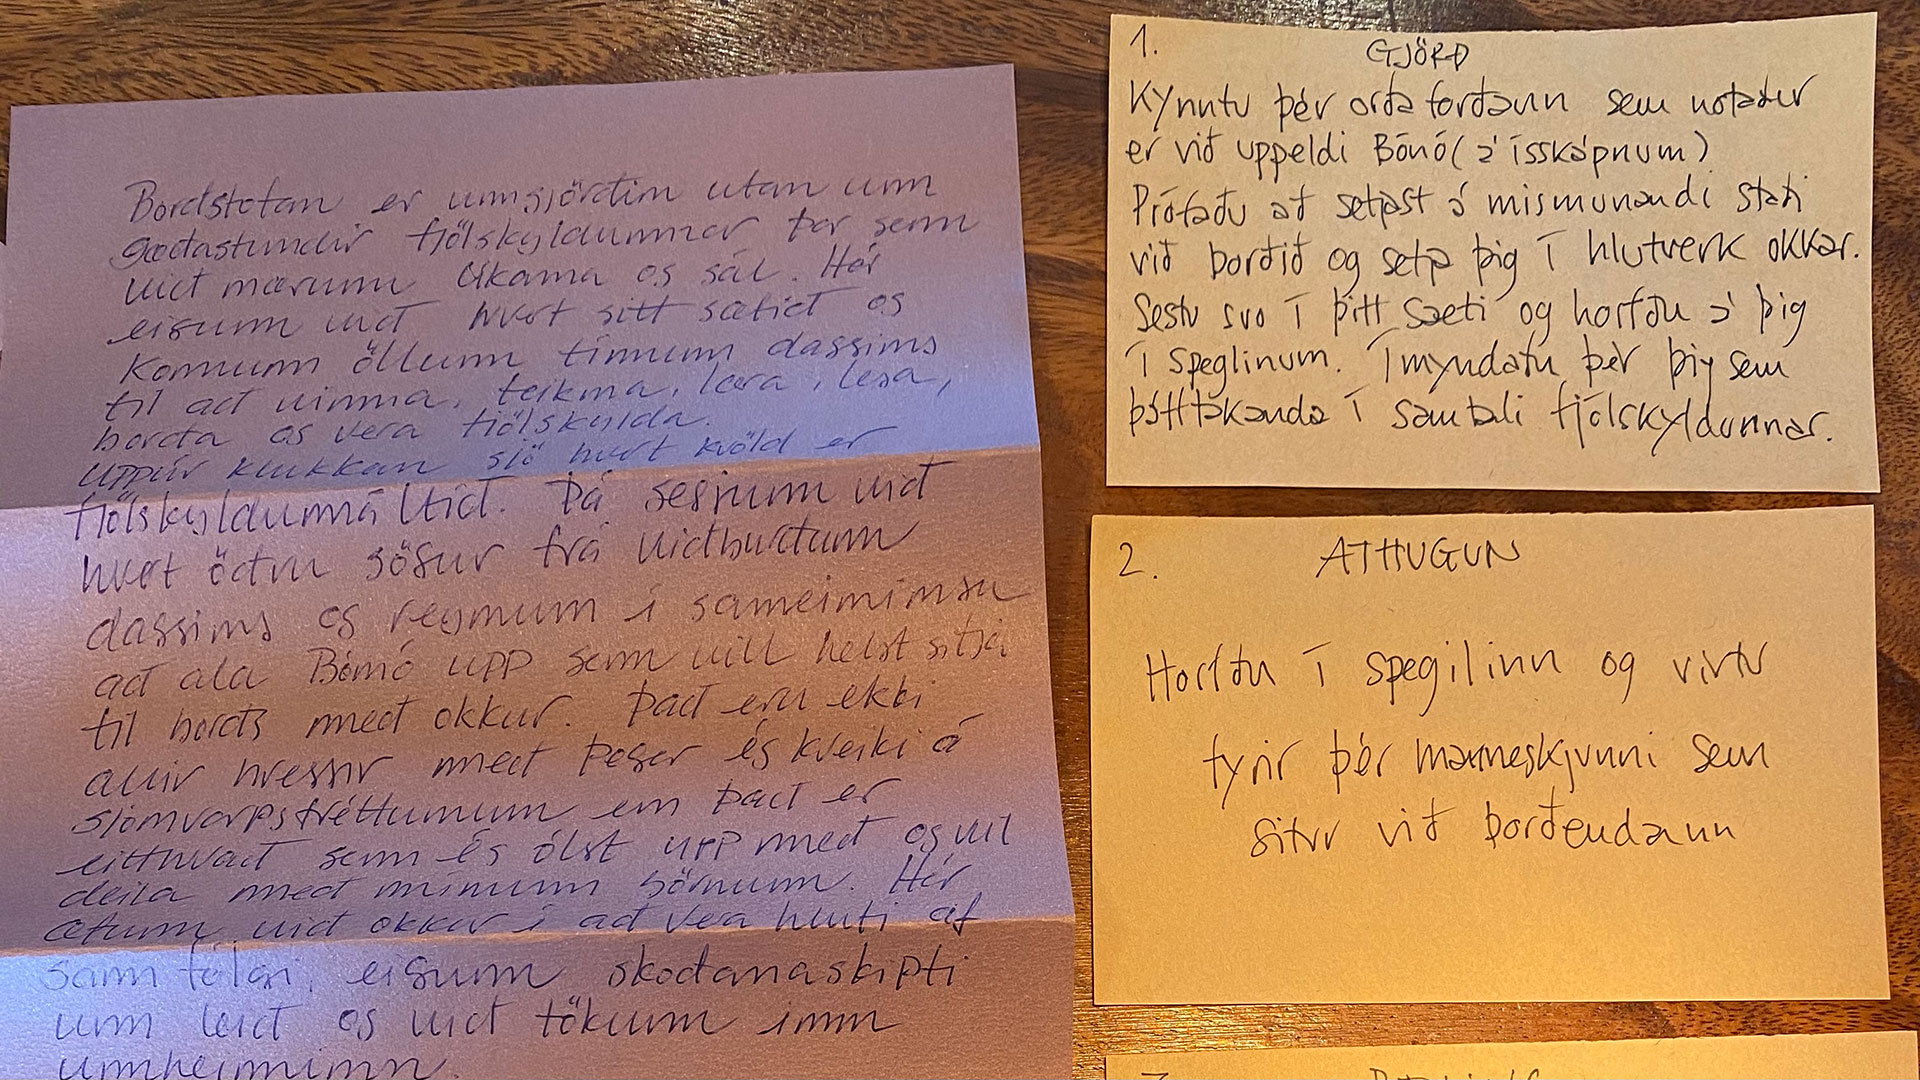 Borðstofan er umgjörðin utan um
gæðastundir fjölskyldunnar þar sem
við nærum líkama og sál. Hér
eigum við hvert sitt sætið og
komum öllum tímum dagsins
til að vinna, teikna, læra, lesa,
borða og vera fjölskylda.
Uppúr klukkan sjö hvert kvöld er
fjölskyldumáltíð. Þá segjum við
hvert öðru sögur frá viðburðum
dagsins og reynum í sameiningu
að ala Bónó upp sem vill helst sitja
til borðs með okkur. Það eru ekki
allir hressir með þegar ég kveiki á
sjónvarpsfréttunum en það er
eitthvað sem ég ólst upp með og vil
deila með mínum börnum. Hér
ætum við okkur í að vera hluti af
samfélagi, eigum skoðanaskipti
um leið og við tökum inn
umheiminn.
1. GJÖRÐ
Kynntu þér orðaforðann sem notaður
er við uppeldi Bónó (á ísskápnum)
Prófaðu að setjast á mismunandi staði
við borðið og setja þig í hlutverk okkar.
Sestu svo í þitt sæti og horfðu á þig
í speglinum. Ímyndaðu þér þig sem
þátttakanda í samtali fjölskyldunnar.
2. ATHUGUN
Horfðu í spegilinn og virtu
fyrir þér manneskjunni sem
situr við borðendann